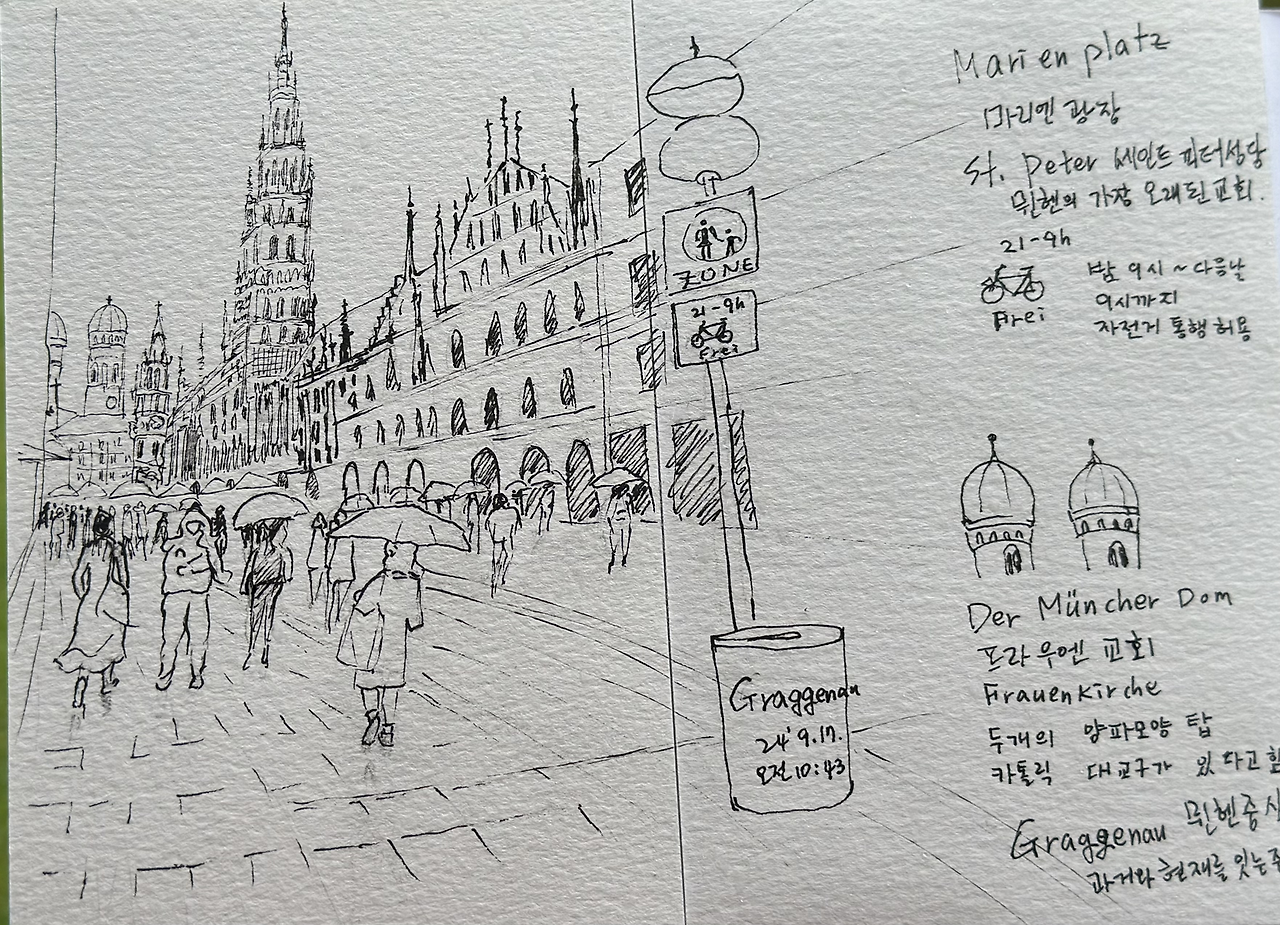 ZONE
21-9h
Frei
Graggenau
24' 9.17.
오전 10:43
Marienplatz
마리엔 광장
St. Peter 세인트 피터성당
뮌헨의 가장 오래된 교회.
21-9h
밤 9시 ~ 다음날
9시까지
Frei
자전거 통행 허용
Der Müncher Dom
프라우엔 교회
Frauenkirche
두개의 양파모양 탑
카톨릭 대교구가 있다고 함
Graggenau 뮌헨중시
과거와 현재를 잇는